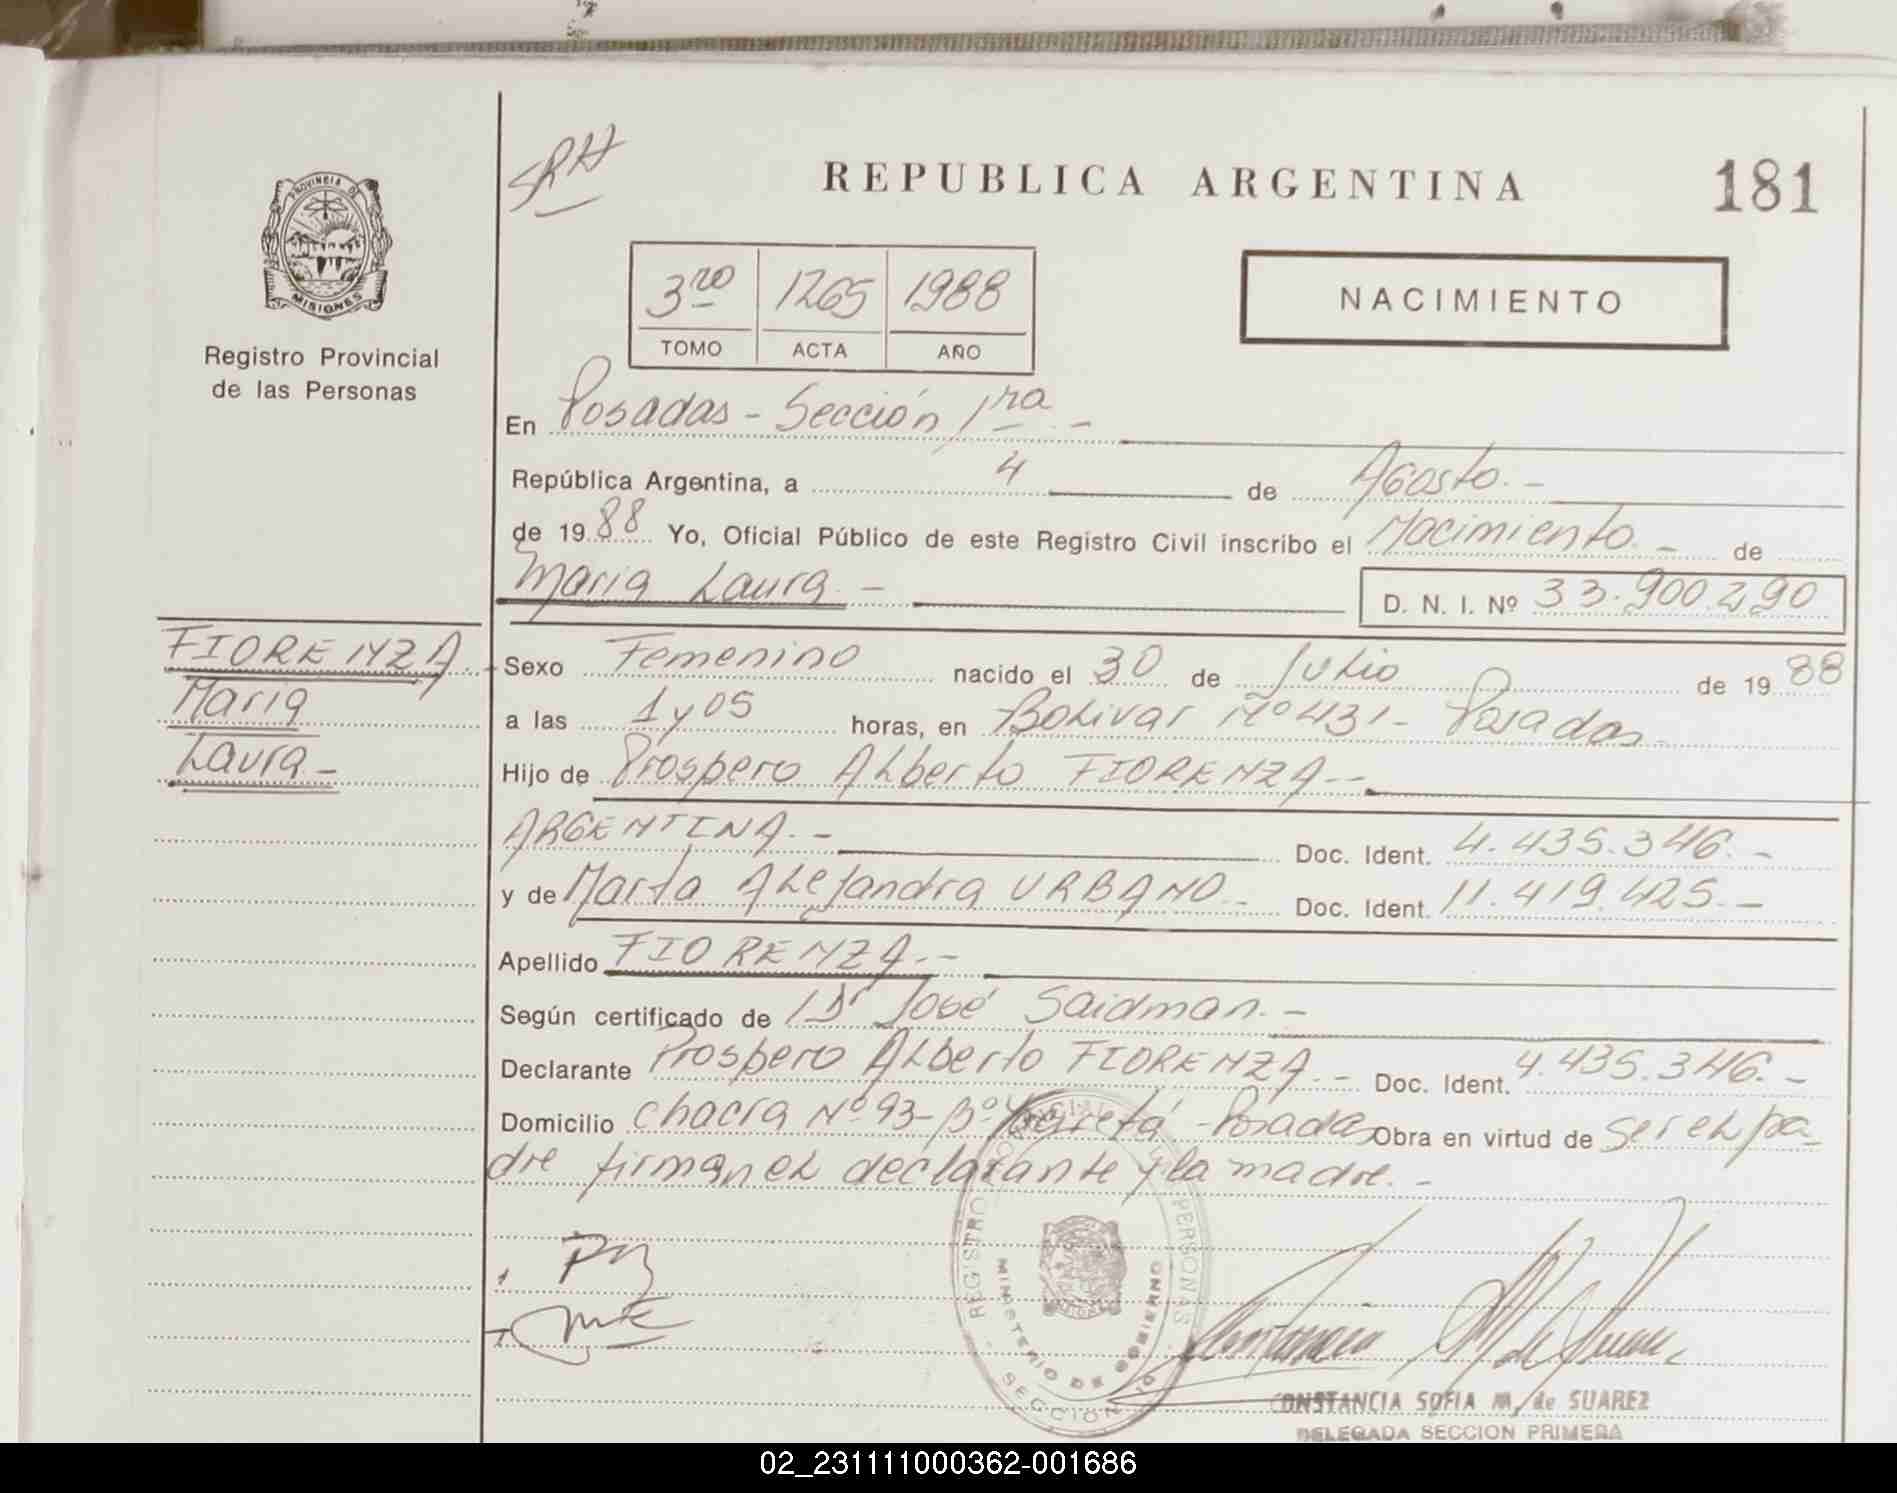 SRH
REPUBLICA ARGENTINA
181
PROVINCIA DE
MISIONES
Registro Provincial
de las Personas
3ro 1265 1988
TOMO ACTA AÑO
NACIMIENTO
En Posadas - Sección 1ra -
República Argentina, a 4 de Agosto. -
de 1988 Yo, Oficial Público de este Registro Civil inscribo el Nacimiento. - de
Maria Laura. -
D. N. I. Nº 33.900.290
FIORENZA.
Maria
Laura -
Sexo Femenino nacido el 30 de Julio de 1988
a las 1 y 05 horas, en Bolivar Nº 431 - Posadas
Hijo de Prospero Alberto FIORENZA. -
ARGENTINA. - Doc. Ident. 4.435.346. -
y de Marta Alejandra URBANO. - Doc. Ident. 11.419.425. -
Apellido FIORENZA. -
Según certificado de Dr José Saidman. -
Declarante Prospero Alberto FIORENZA. - Doc. Ident. 4.435.346. -
Domicilio Chacra Nº 93 - Bº Yacyretá - Posadas Obra en virtud de ser el pa
dre firman el declarante y la madre. -
REGISTRO PROVINCIAL DE LAS PERSONAS
MINISTERIO DE GOBIERNO
SECCION 1a
CONSTANCIA SOFIA M. de SUAREZ
DELEGADA SECCION PRIMERA
02_231111000362-001686